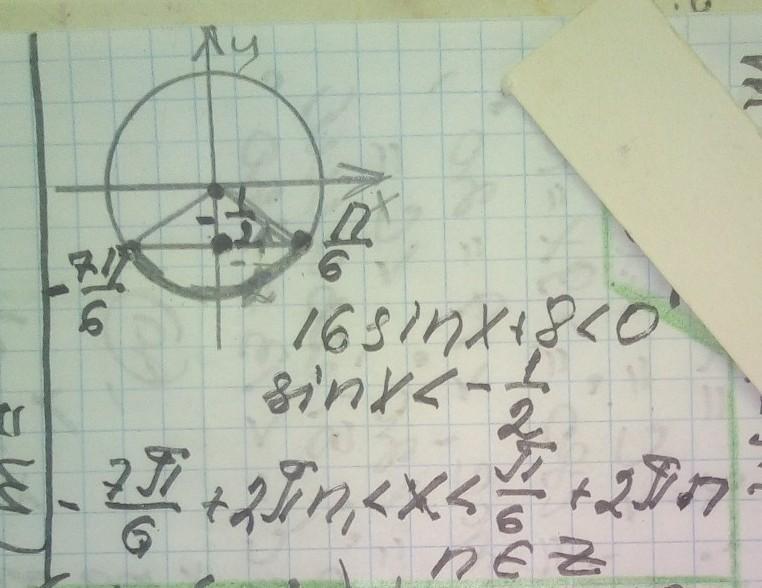 y
x
-1/2
-7π/6
π/6
16 sin x + 8 < 0
sin x < -1/2
-7π/6 + 2πn < x < π/6 + 2πn
n ∈ Z